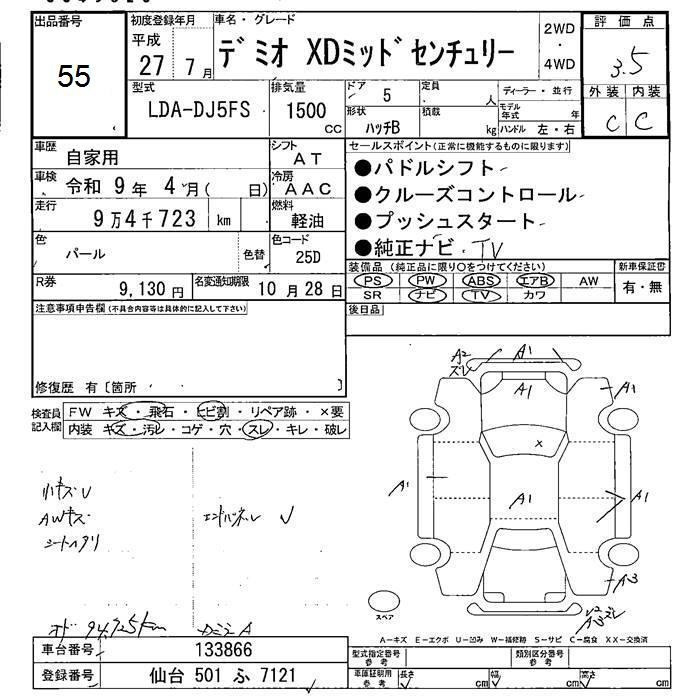 出品番号
55
初度登録年月
平成
27 7月
車名・グレード
デミオ XDミッドセンチュリー
2WD
・
4WD
評価点
3.5
外装 内装
C C
型式
LDA-DJ5FS
排気量
1500
CC
ドア
5
定員
人
形状
ハッチB
積載
kg
ディーラー・並行
モデル
年式
年
ハンドル 左・右
車歴
自家用
シフト
AT
車検
令和 9年 4月( 日)
冷房
AAC
走行
9万4千723 km
燃料
軽油
色
パール
色替
色コード
25D
R券
9,130円
名変通知期限
10月28日
セールスポイント(正常に機能するものに限ります)
●パドルシフト
●クルーズコントロール
●プッシュスタート
●純正ナビ・TV
装備品(純正品に限り○をつけてください)
新車保証書
PS PW ABS エアB AW
SR ナビ TV カワ
有・無
後日品
注意事項申告欄(不具合内容等は具体的に記入して下さい)
修復歴 有〔箇所 〕
検査員
記入欄
FW キズ・飛石・ヒビ割・リペア跡・×要
内装 キズ・汚レ・コゲ・穴・スレ・キレ・破レ
小キズU
AWキズ
シートヘタリ
エンドパネル
オド 94,725km
A2
ズレ
A1
A1
A1
×
A1
A1
A1
A3
スペア
A3ズレ
A-キズ E-エクボ U-凹み W-補修跡 S-サビ C-腐食 XX-交換済
車台番号
133866
登録番号
仙台 501 ふ 7121
型式指定番号
参考
類別区分番号
参考
車庫証明用
参考
長さ
cm
幅
cm
高さ
cm